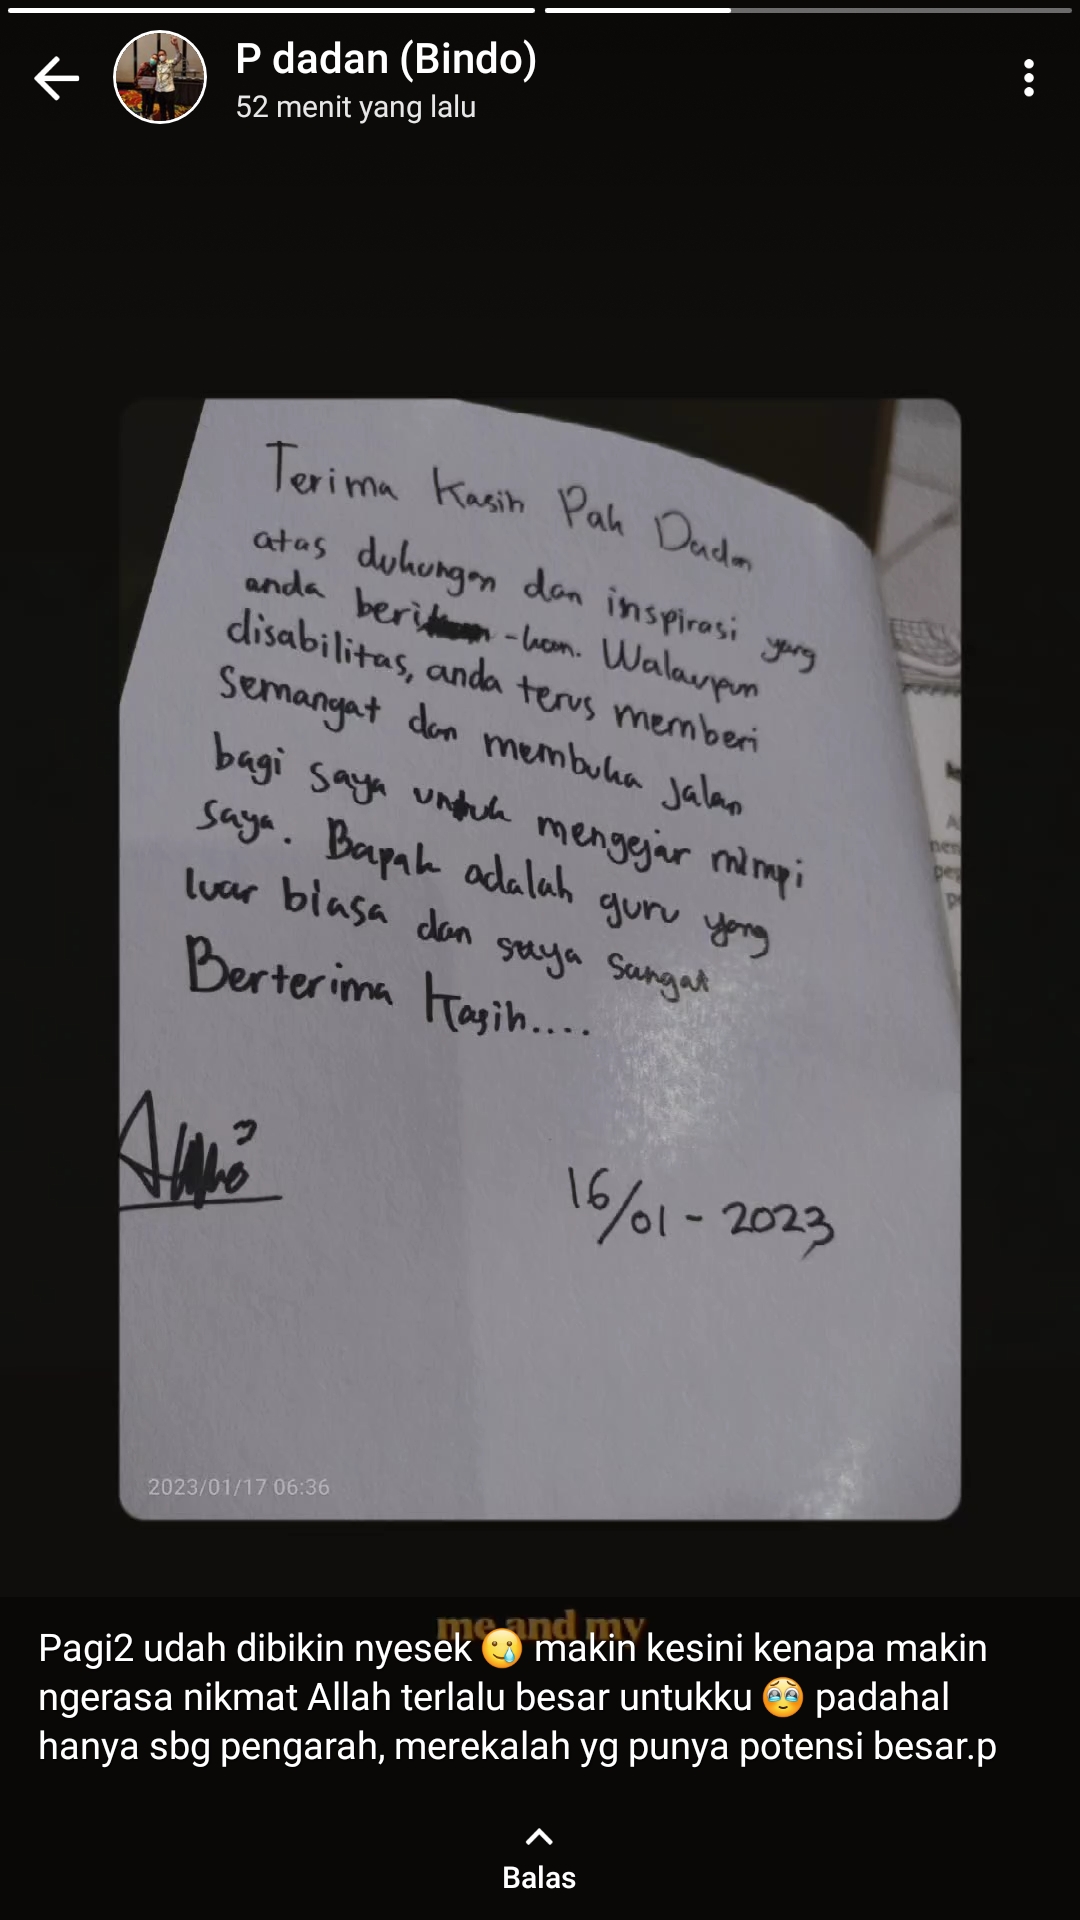 P dadan (Bindo)
52 menit yang lalu
Terima Kasih Pak Dadan
atas dukungan dan inspirasi yang
anda beri -kan. Walaupun
disabilitas, anda terus memberi
semangat dan membuka jalan
bagi saya untuk mengejar mimpi
saya. Bapak adalah guru yang
luar biasa dan saya sangat
Berterima Kasih....
16/01-2023
2023/01/17 06:36
me and my
Pagi2 udah dibikin nyesek 🥲 makin kesini kenapa makin
ngerasa nikmat Allah terlalu besar untukku 🥹 padahal
hanya sbg pengarah, merekalah yg punya potensi besar.p
Balas